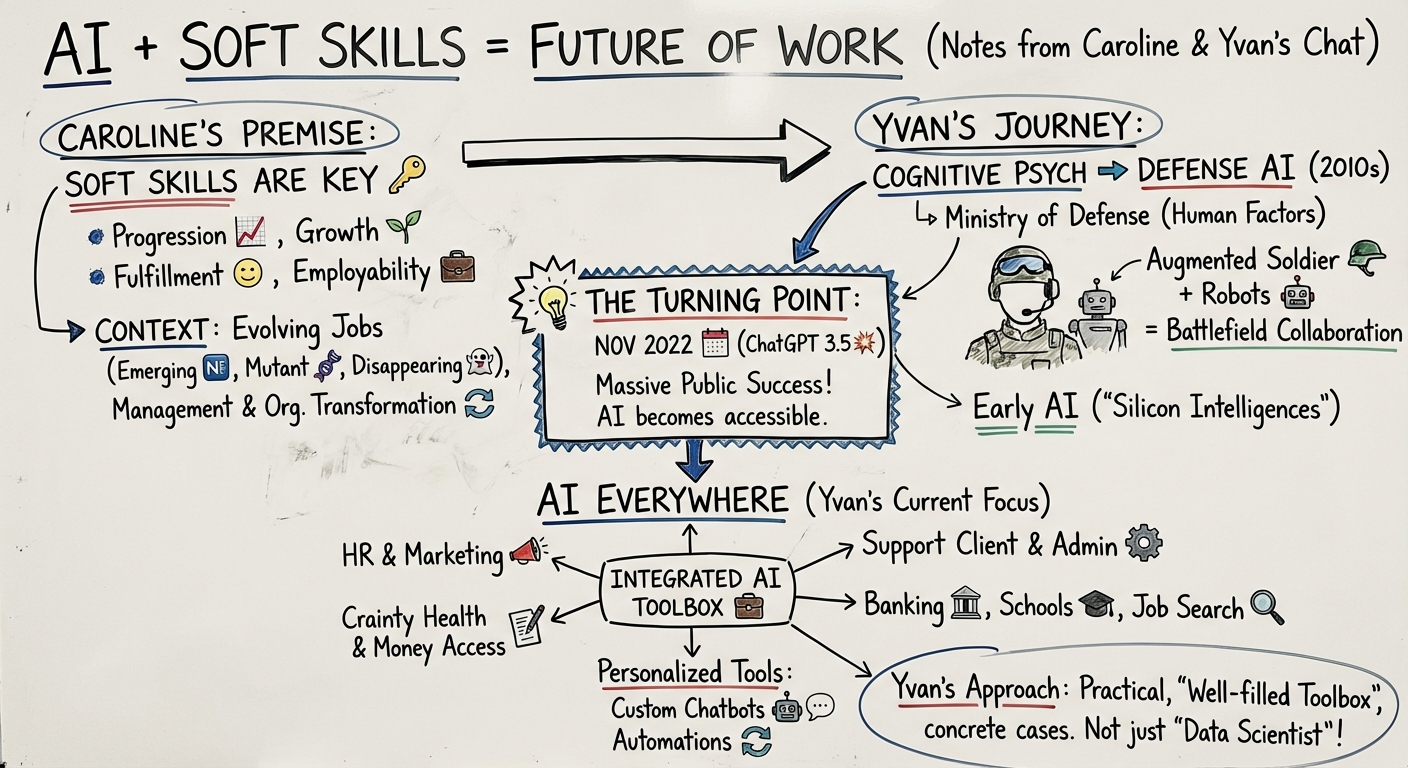 AI + SOFT SKILLS = FUTURE OF WORK (Notes from Caroline & Yvan's Chat)
CAROLINE'S PREMISE:
SOFT SKILLS ARE KEY
Progression , Growth
Fulfillment , Employability
CONTEXT: Evolving Jobs
(Emerging NE, Mutant, Disappearing),
Management & Org. Transformation
YVAN'S JOURNEY:
COGNITIVE PSYCH → DEFENSE AI (2010s)
↳ Ministry of Defense (Human Factors)
Augmented Soldier
+ Robots
= Battlefield Collaboration
Early AI ("Silicon Intelligences")
THE TURNING POINT:
NOV 2022 (ChatGPT 3.5)
Massive Public Success!
AI becomes accessible.
AI EVERYWHERE (Yvan's Current Focus)
INTEGRATED AI
TOOLBOX
HR & Marketing
Crainty Health
& Money Access
Support Client & Admin
Banking , Schools , Job Search
Personalized Tools:
Custom Chatbots
Automations
Yvan's Approach: Practical, "Well-filled Toolbox",
concrete cases. Not just "Data Scientist"!